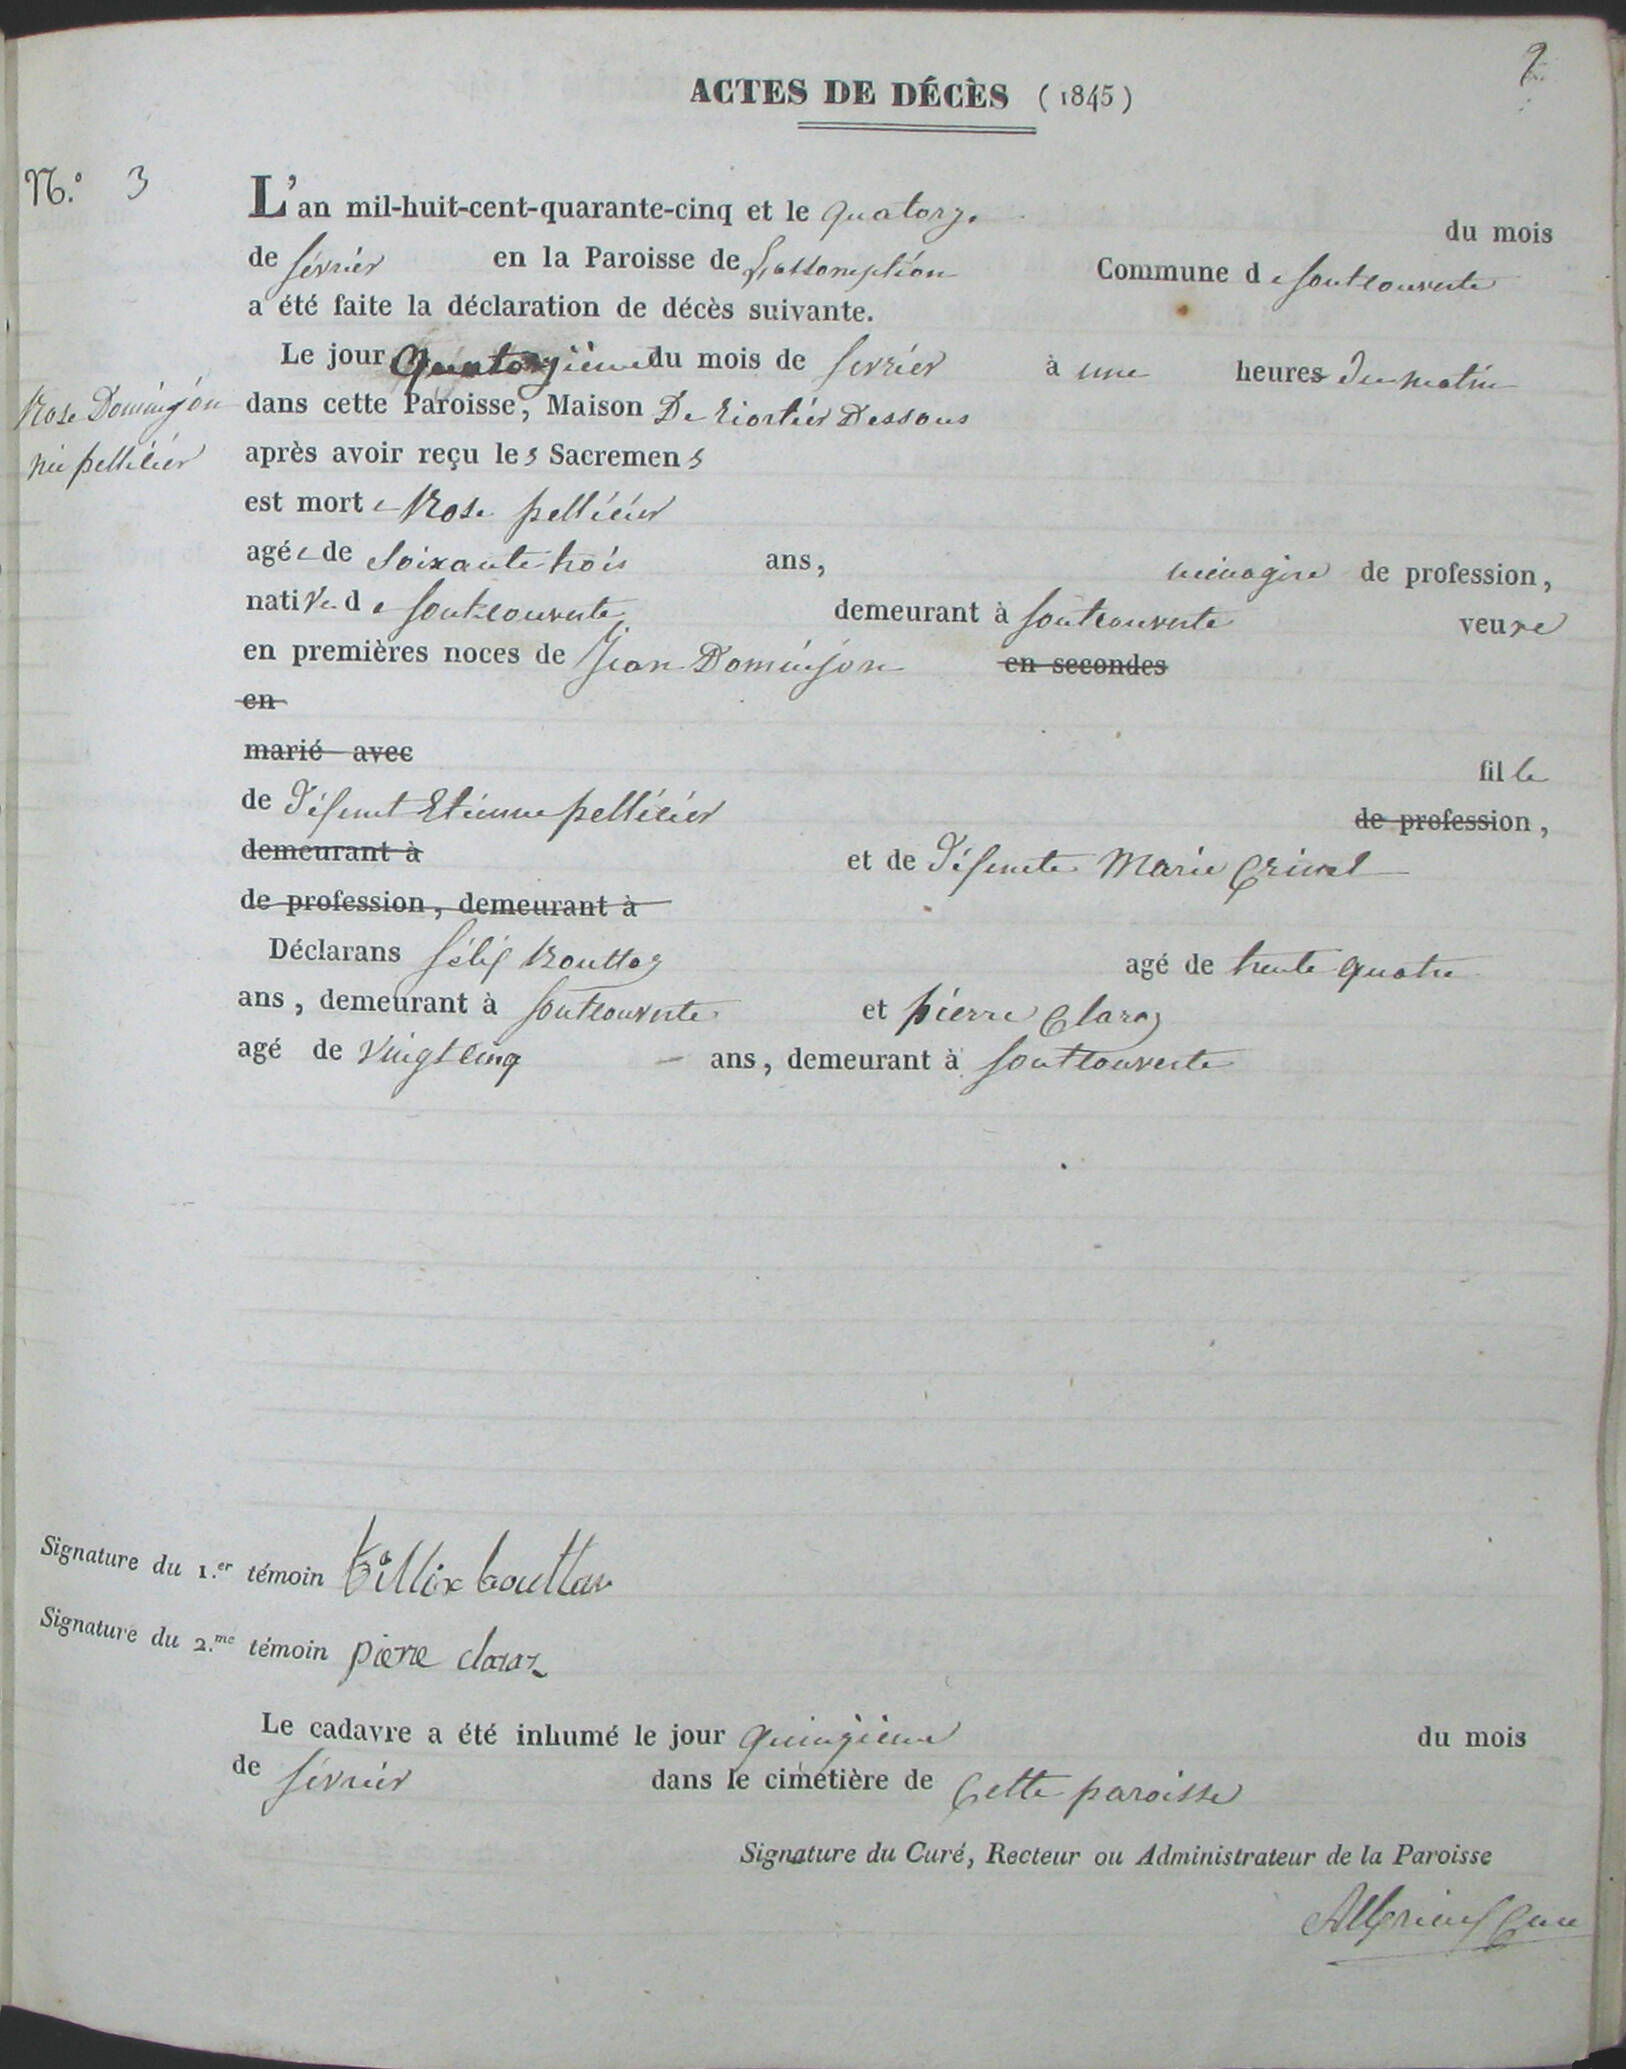 2
ACTES DE DÉCÈS (1845)
N.° 3
L'an mil-huit-cent-quarante-cinq et le quatorze du mois
de février en la Paroisse de L'assomption Commune de pontcouverte
a été faite la déclaration de décès suivante.
Le jour quatorzieme du mois de fevrier à une heures du matin
Rose Dominjon
née pellicier
dans cette Paroisse, Maison De Dessous
après avoir reçu les Sacremens
est morte Rose pellicier
agée de soixante trois ans, ménagère de profession,
native de fontcouverte demeurant à fontcouverte veuve
en premières noces de Jean Dominjon en secondes
en
marié avec
fille
de défunt Etienne pellicier de profession,
demeurant à et de défunte Marie
de profession, demeurant à
Déclarans félix Bouttaz agé de trente quatre
ans, demeurant à fontcouverte et pierre Claraz
agé de vingt cinq ans, demeurant à fontcouverte
Signature du 1.er témoin fellix bouttaz
Signature du 2.me témoin piere claraz
Le cadavre a été inhumé le jour quinzieme du mois
de février dans le cimetière de Cette paroisse
Signature du Curé, Recteur ou Administrateur de la Paroisse
Curé